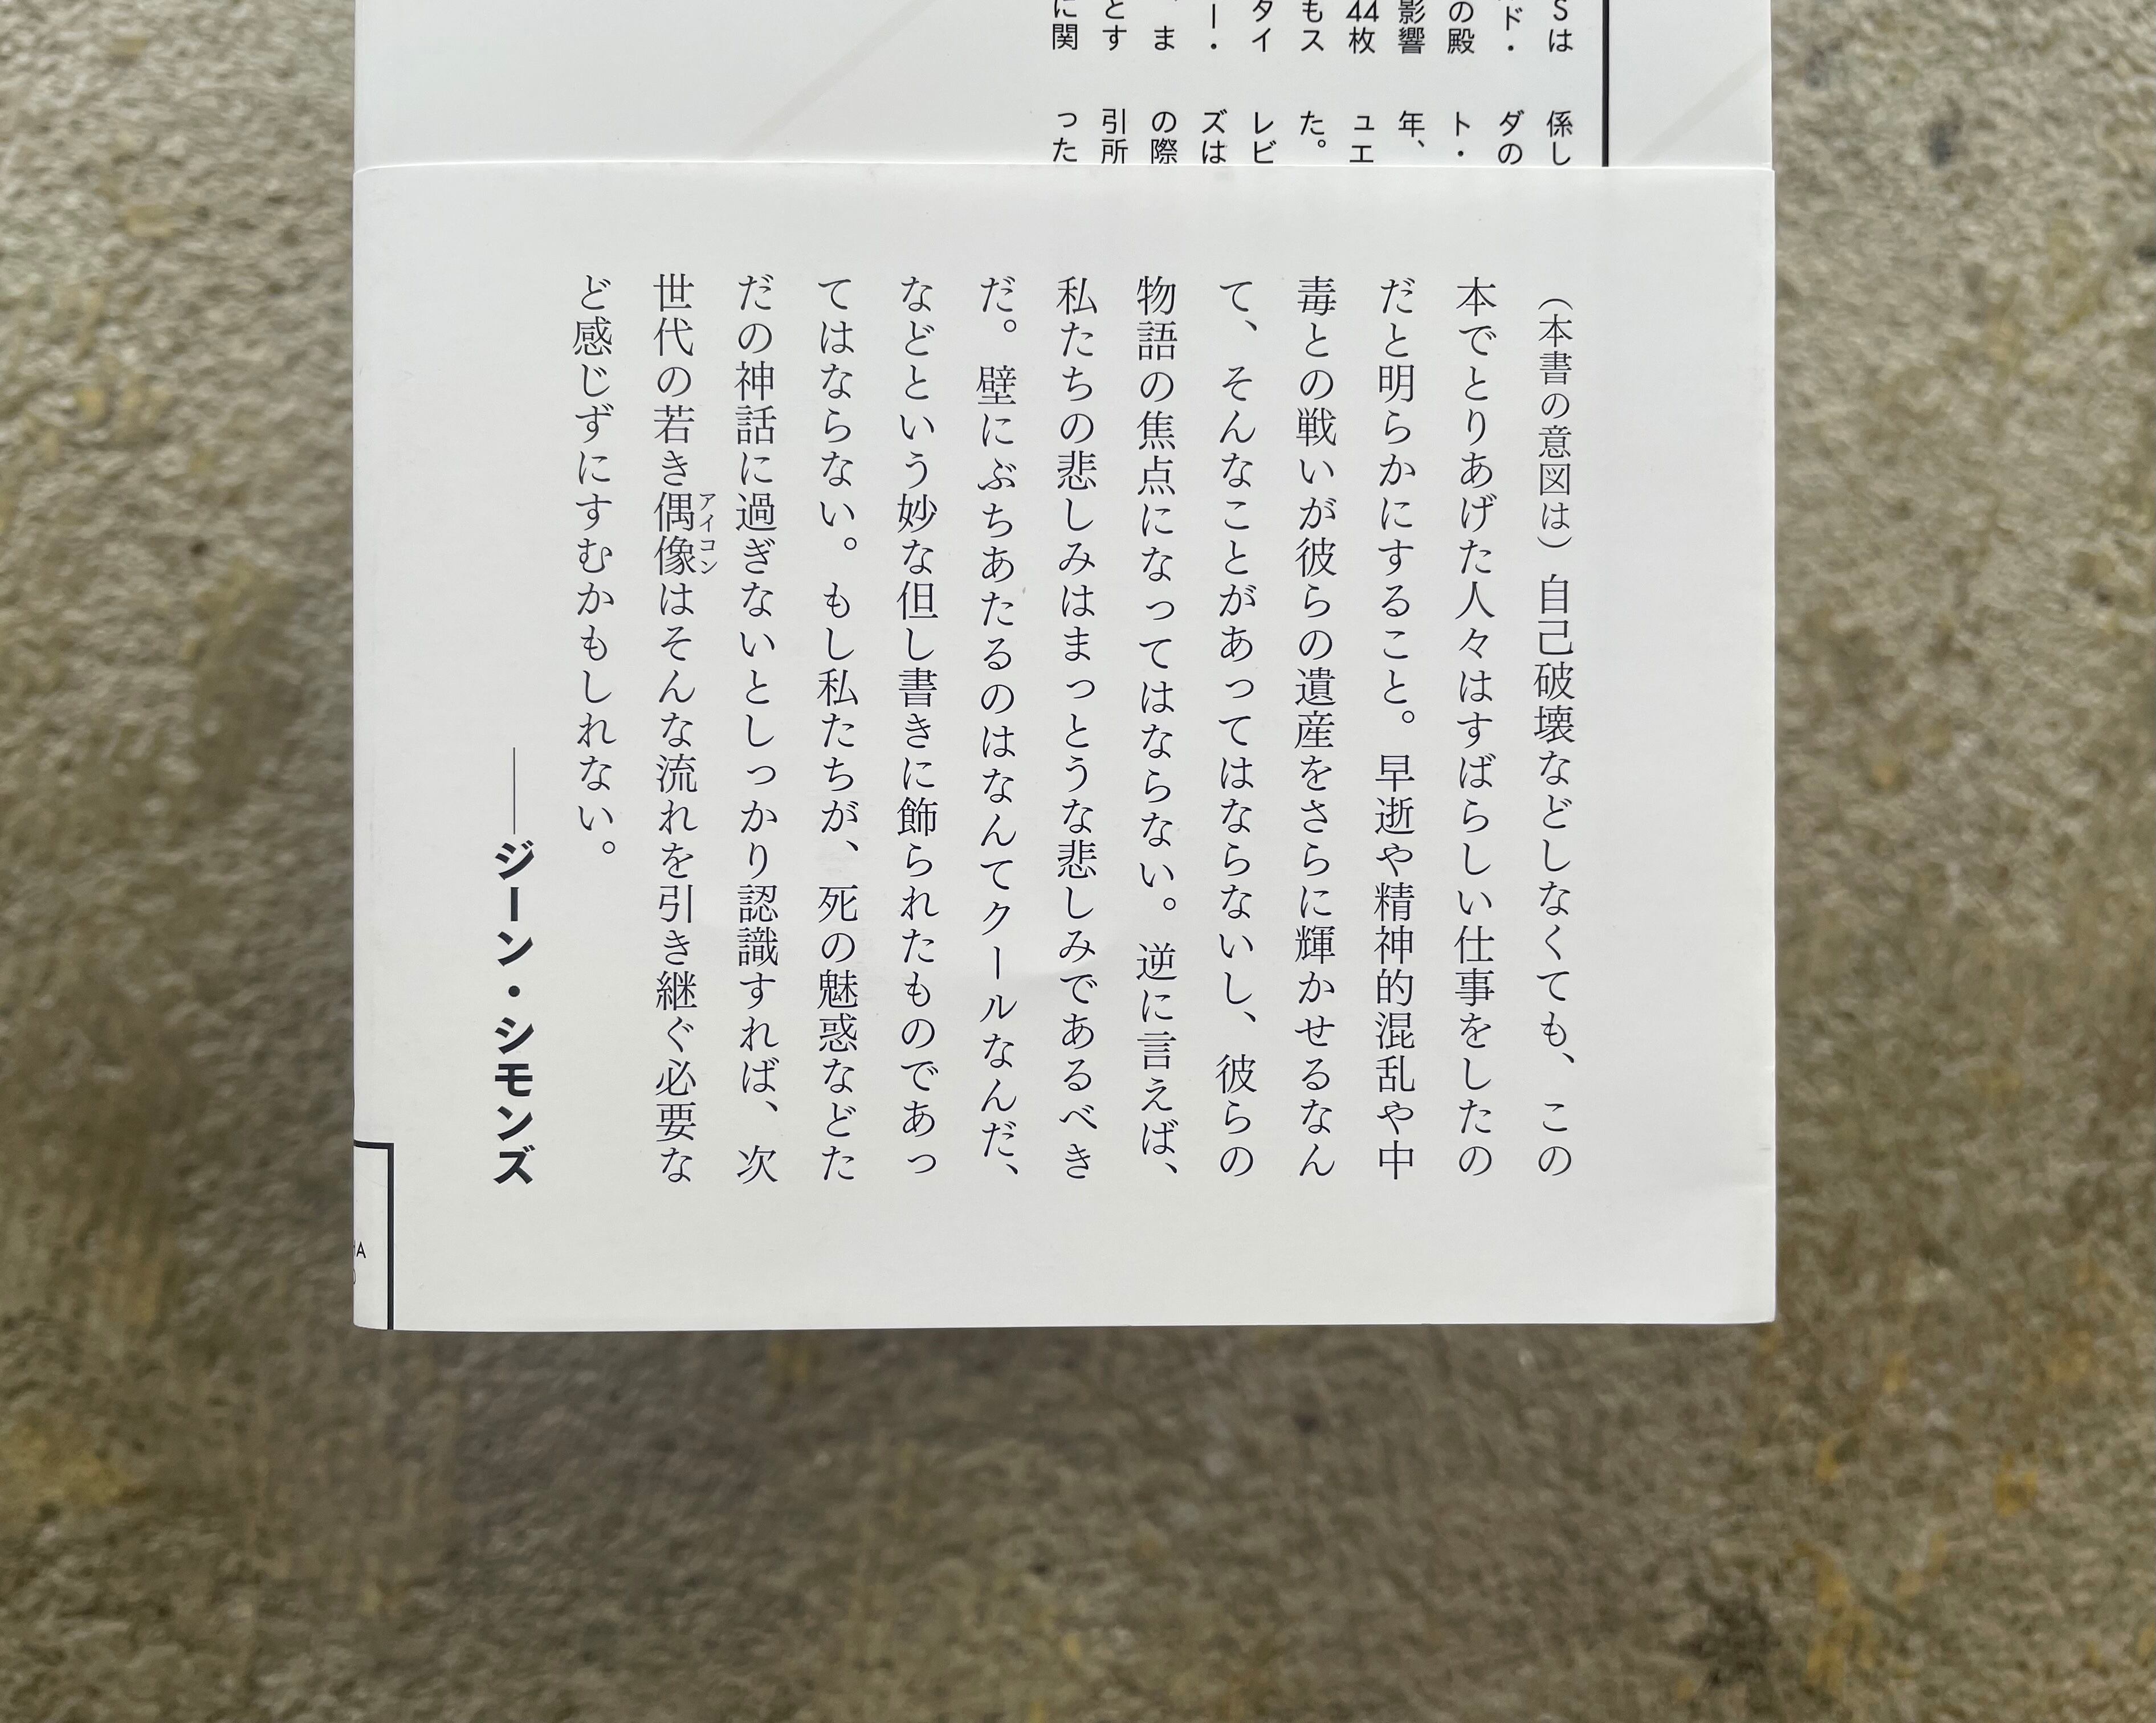 Sは
ド・
の殿
影響
44枚
もス
タイ
ー・
、ま
とす
に関
係し
ダの
ト・
年、
ュエ
た。
レビ
ズは
の際
引所
った
（本書の意図は）自己破壊などしなくても、この
本でとりあげた人々はすばらしい仕事をしたの
だと明らかにすること。早逝や精神的混乱や中
毒との戦いが彼らの遺産をさらに輝かせるなん
て、そんなことがあってはならないし、彼らの
物語の焦点になってはならない。逆に言えば、
私たちの悲しみはまっとうな悲しみであるべき
だ。壁にぶちあたるのはなんてクールなんだ、
などという妙な但し書きに飾られたものであっ
てはならない。もし私たちが、死の魅惑などた
だの神話に過ぎないとしっかり認識すれば、次
世代の若き偶像はそんな流れを引き継ぐ必要な
アイコン
ど感じずにすむかもしれない。
――ジーン・シモンズ